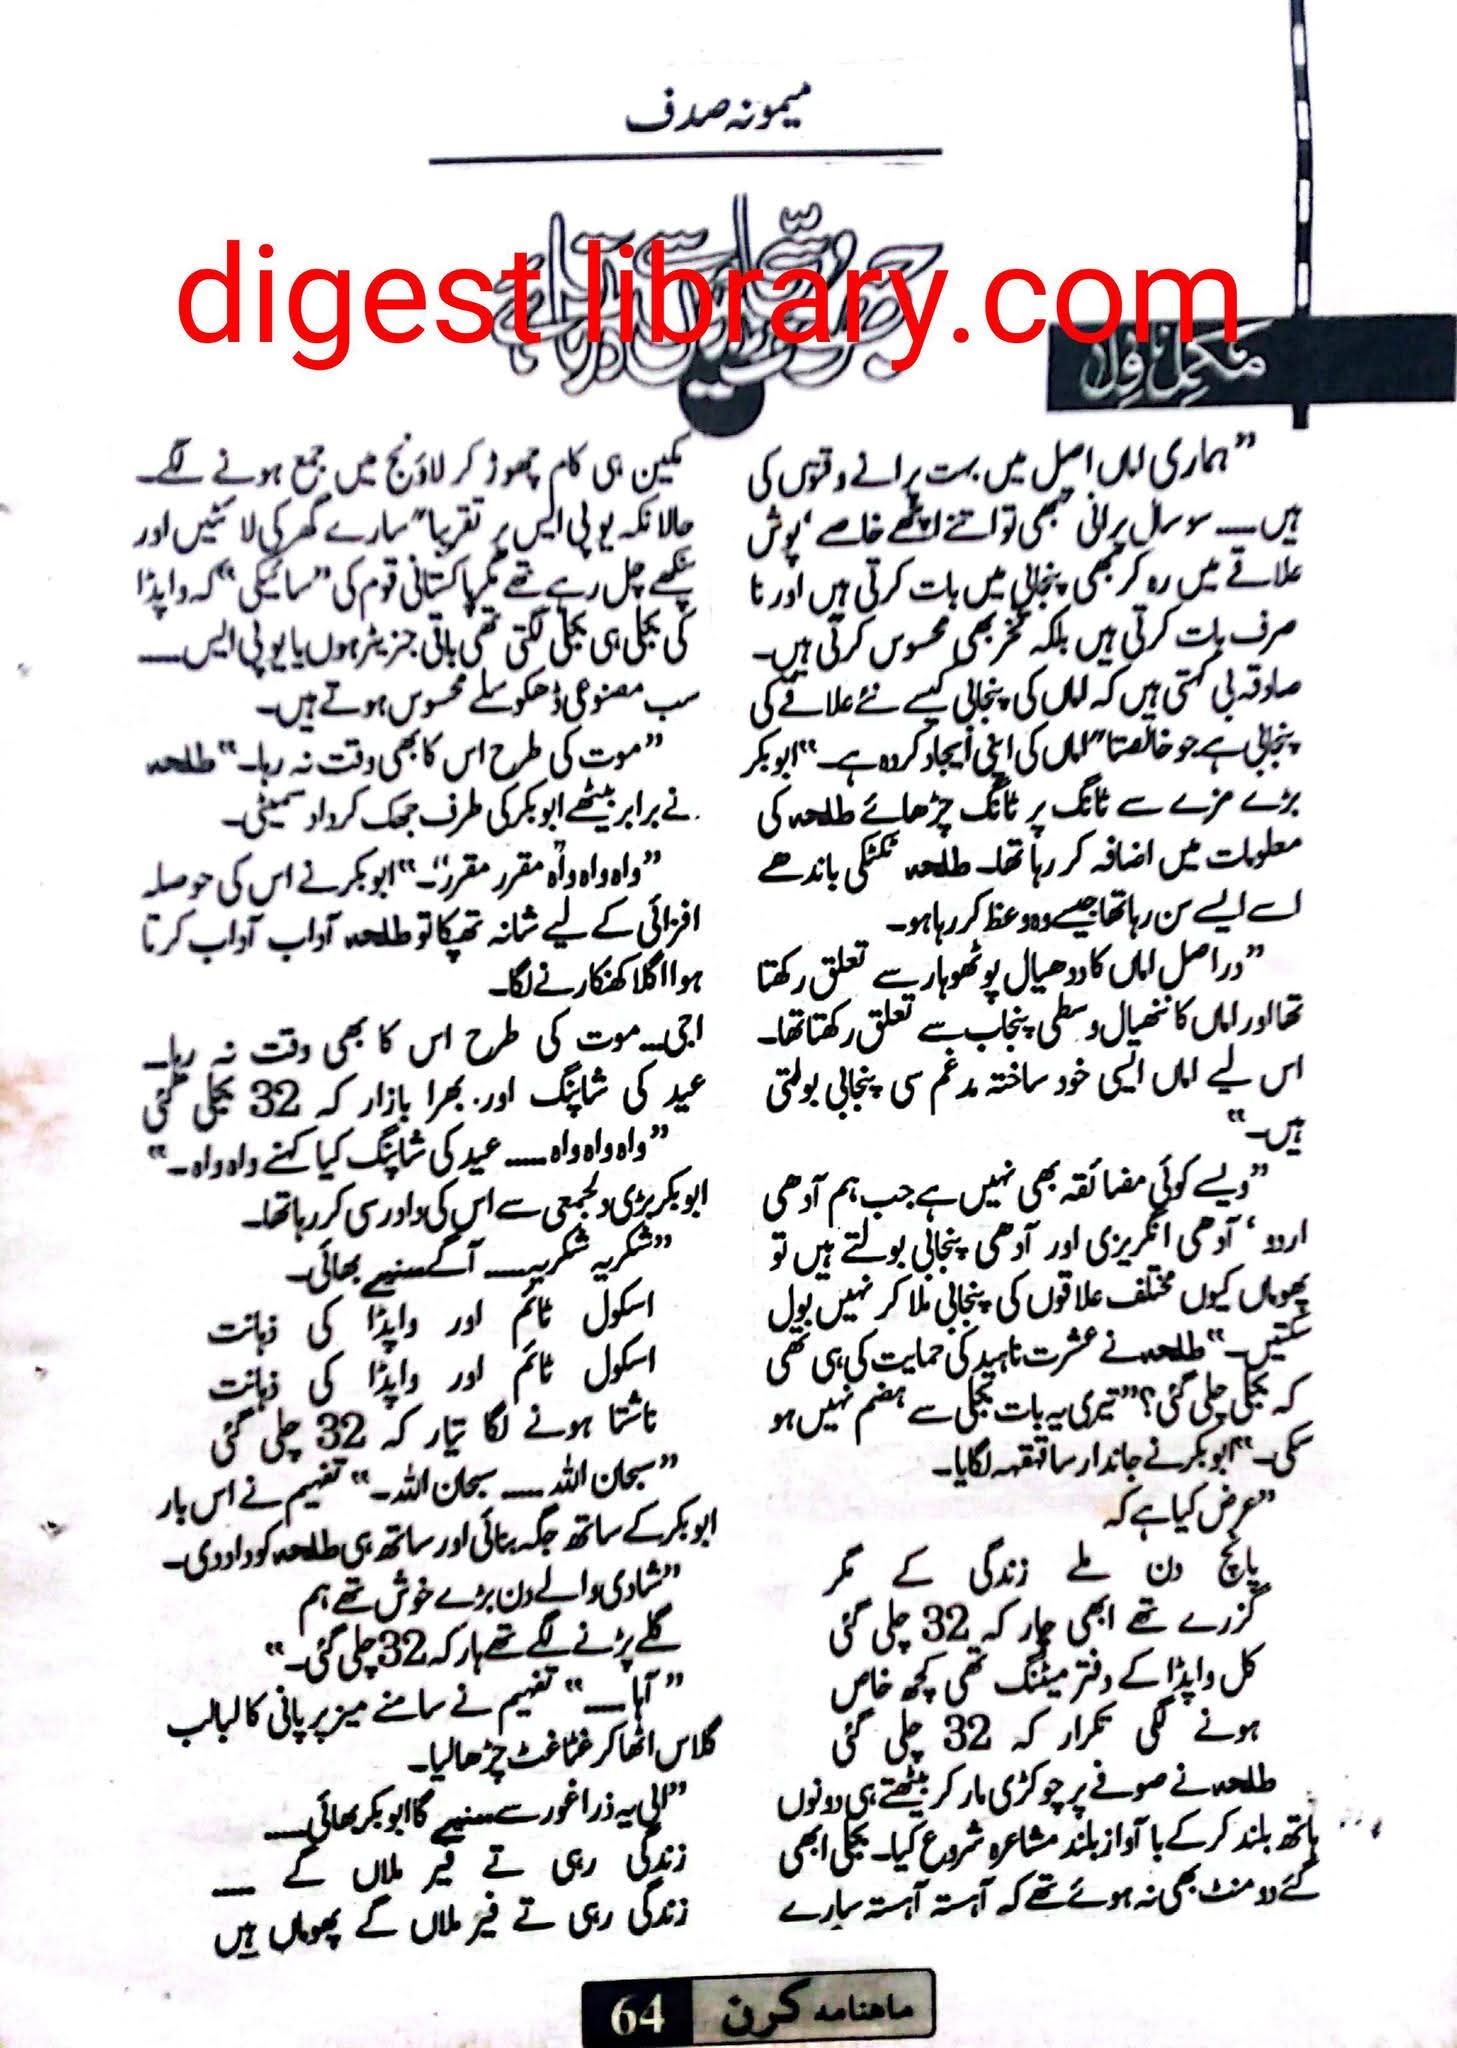 میمونہ صدف
digest library.com
مکمل ناول
”ہماری اماں اصل میں بہت پرانے وقتوں کی
ہیں۔۔۔۔ سو سال پرانی تبھی تو اتنے اچھے خاصے ‘ پوش
علاقے میں رہ کر بھی پنجابی میں بات کرتی ہیں اور نا
صرف بات کرتی ہیں بلکہ فخر بھی محسوس کرتی ہیں۔
صادقہ بی کہتی ہیں کہ اماں کی پنجابی کیسے نئے علاقے کی
پنجابی ہے جو خالصتا” اماں کی اپنی ایجاد کردہ ہے۔“ ابوبکر
بڑے مزے سے ٹانگ پر ٹانگ چڑھائے طلحہ کی
معلومات میں اضافہ کر رہا تھا۔ طلحہ ٹکٹکی باندھے
اسے ایسے سن رہا تھا جیسے وہ وعظ کر رہا ہو۔
”دراصل اماں کا ددھیال پوٹھوہار سے تعلق رکھتا
تھا اور اماں کا ننھیال وسطی پنجاب سے تعلق رکھتا تھا۔
اس لیے اماں ایسی خود ساختہ مدغم سی پنجابی بولتی
ہیں۔“
”ویسے کوئی مضائقہ بھی نہیں ہے جب ہم آدھی
اردو ‘ آدھی انگریزی اور آدھی پنجابی بولتے ہیں تو
پھوماں کیوں مختلف علاقوں کی پنجابی ملا کر نہیں بول
سکتیں۔“ طلحہ نے عشرت ناہید کی حمایت کی ہی تھی
کہ بجلی چلی گئی؟ ”تیری یہ بات بجلی سے ہضم نہیں ہو
سکی۔“ ابوبکر نے جاندار سا قہقہہ لگایا۔
”عرض کیا ہے کہ
پانچ دن ملے زندگی کے مگر
گزرے تھے ابھی چار کہ 32 چلی گئی
کل واپڈا کے دفتر میٹنگ تھی کچھ خاص
ہونے لگی تکرار کہ 32 چلی گئی
طلحہ نے صوفے پر چوکڑی مار کر بیٹھتے ہی دونوں
ہاتھ بلند کر کے با آواز بلند مشاعرہ شروع کیا۔ بجلی ابھی
گئے دو منٹ بھی نہ ہوئے تھے کہ آہستہ آہستہ سارے
مکین ہی کام چھوڑ کر لاؤنج میں جمع ہونے لگے۔
حالانکہ یو پی ایس پر تقریبا” سارے گھر کی لائٹیں اور
پنکھے چل رہے تھے مگر پاکستانی قوم کی ”سائیکی“ کہ واپڈا
کی بجلی ہی بجلی لگتی تھی باقی جنریٹر ہوں یا یو پی ایس۔۔۔۔
سب مصنوعی ڈھکوسلے محسوس ہوتے ہیں۔
”موت کی طرح اس کا بھی وقت نہ رہا۔“ طلحہ
نے برابر بیٹھے ابوبکر کی طرف جھک کر داد سمیٹی۔
”واہ واہ واہ مقرر مقرر“۔ ابوبکر نے اس کی حوصلہ
افزائی کے لیے شانہ تھپکا تو طلحہ آداب آداب کرتا
ہوا اگلا کھنکارنے لگا۔
اجی۔۔۔ موت کی طرح اس کا بھی وقت نہ رہا۔
عید کی شاپنگ اور بھرا بازار کہ 32 بجلی گئی
”واہ واہ واہ۔۔۔۔ عید کی شاپنگ کیا کہنے واہ واہ۔“
ابوبکر بڑی دلجمعی سے اس کی داد رسی کر رہا تھا۔
”شکریہ شکریہ۔۔۔۔ آگے سنیے بھائی۔
اسکول ٹائم اور واپڈا کی ذہانت
اسکول ٹائم اور واپڈا کی ذہانت
ناشتا ہونے لگا تیار کہ 32 چلی گئی
”سبحان اللہ۔۔۔۔ سبحان اللہ۔“ تفہیم نے اس بار
ابوبکر کے ساتھ جگہ بنائی اور ساتھ ہی طلحہ کو داد دی۔
”شادی والے دن بڑے خوش تھے ہم
گلے پڑنے لگے تھے ہار کہ 32 چلی گئی۔“
”آہا۔۔۔۔“ تفہیم نے سامنے میز پر پانی کا لبالب
گلاس اٹھا کر غٹاغٹ چڑھا لیا۔
یہ ذرا غور سے سنیے گا ابوبکر بھائی۔۔۔۔
زندگی رہی تے فیر ملاں گے ۔۔۔۔
زندگی رہی تے فیر ملاں گے پھوماں ہیں
ماہنامہ کرن 64